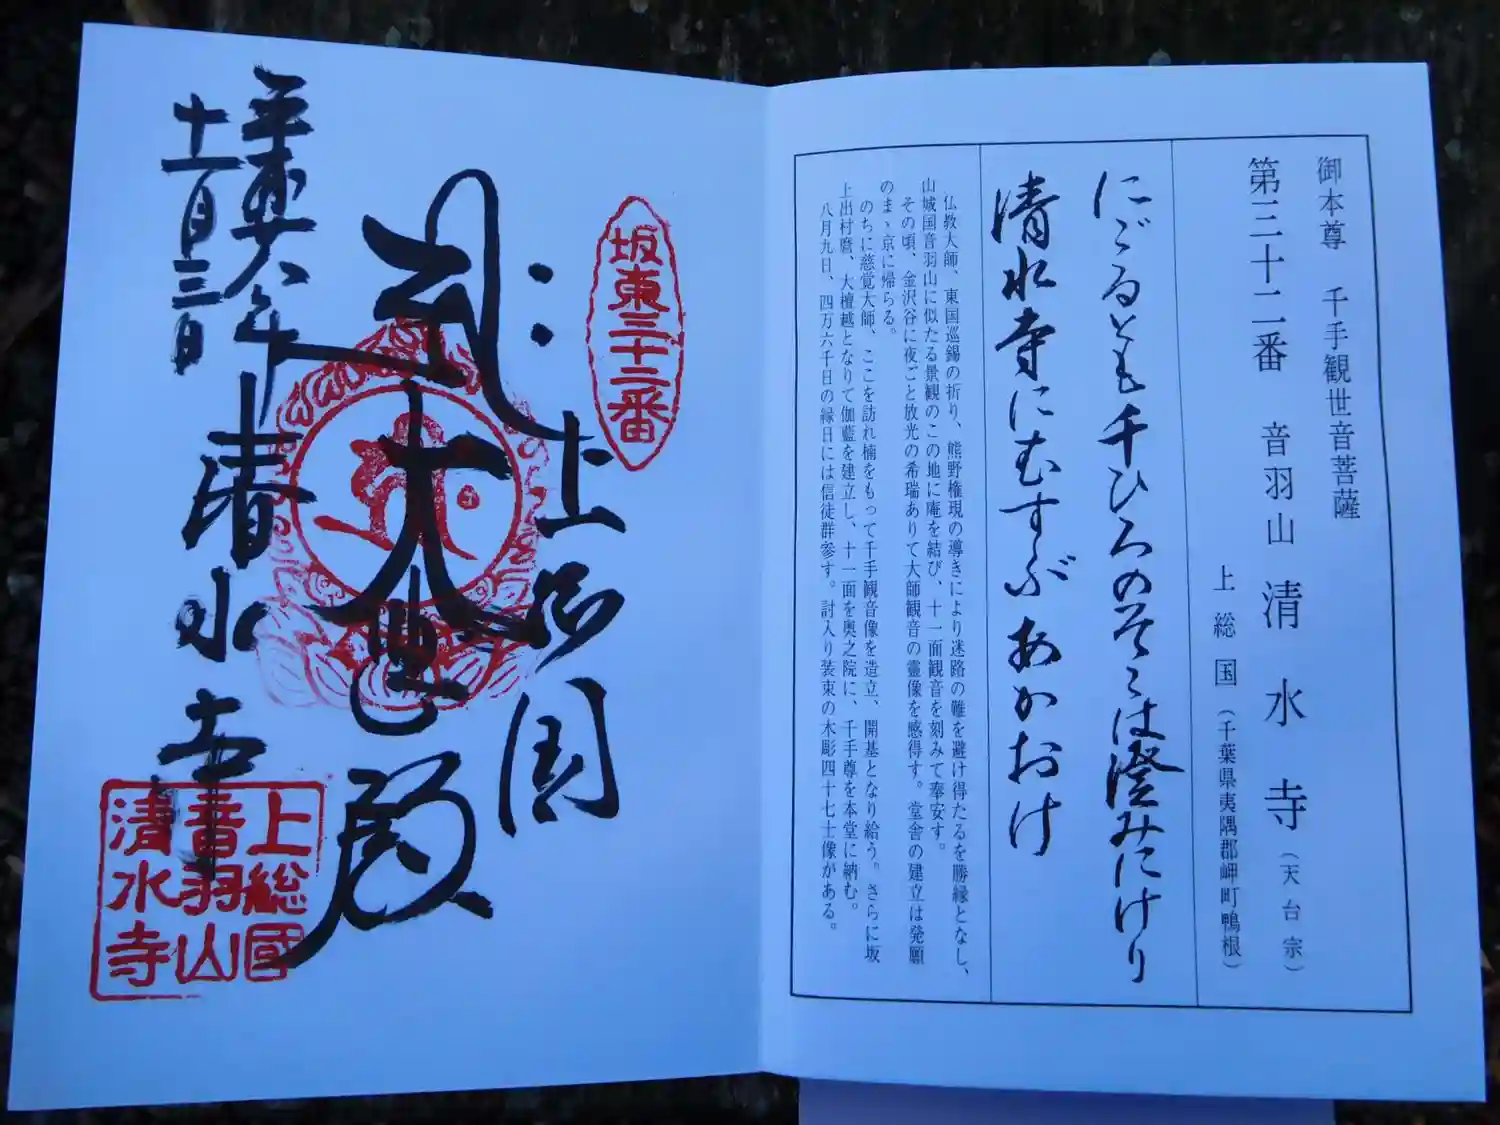 御本尊　千手観世音菩薩
第三十二番　音羽山　清水寺（天台宗）
上総国（千葉県夷隅郡岬町鴨根）
にごるとも千ひろのそこは澄みにけり
清水寺にむすぶあかおけ
仏教大師、東国巡錫の折り、熊野権現の導きにより迷路の難を避け得たるを勝縁となし、
山城国音羽山に似たる景観のこの地に庵を結び、十一面観音を刻みて奉安す。
その頃、金沢谷に夜ごと放光の希瑞ありて大師観音の霊像を感得す。堂舎の建立は発願
のまゝ京に帰らる。
のちに慈覚大師、ここを訪れ楠をもって千手観音像を造立、開基となり給う。さらに坂
上出村麿、大檀越となりて伽藍を建立し、十一面を奥之院に、千手尊を本堂に納む。
八月九日、四万六千日の縁日には信徒群参す。討入り装束の木彫四十七士像がある。
坂東三十二番
上総国
大悲殿
清水寺
十一月三日
上総國
音羽山
清水寺